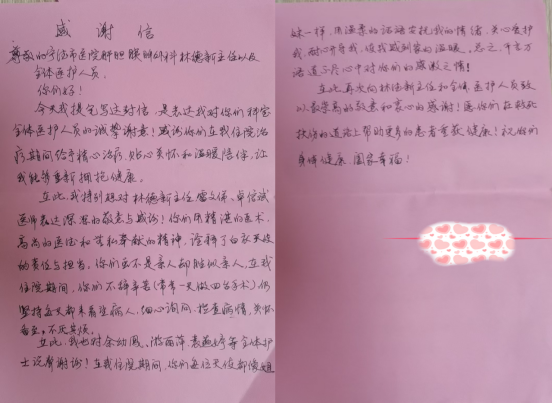 感谢信
尊敬的宁德市医院肝胆胰脾外科林德新主任以及
全体医护人员：
你们好！
今天我提笔写这封信，是表达我对你们科室
全体医护人员的诚挚谢意！感谢你们在我住院治
疗期间给予精心治疗，贴心关怀和温暖陪伴，让
我能够重新拥抱健康。
在此，我特别想对林德新主任
医师表达深深的敬意与感谢！你们用精湛的医术，
高尚的医德和无私奉献的精神，诠释了白衣天使
的责任与担当。你们虽不是亲人却胜似亲人，在我
住院期间，你们不辞辛苦（常常一天做四台手术）仍
坚持每天都来看望病人，细心询问，检查病情，关怀
备至，不厌其烦。
在此，我也对余幼凤、等全体护
士说声谢谢！在我住院期间，你们每位天使都像姐
妹一样，用温柔的话语安抚我的情绪，关心爱护
我，耐心开导我，使我感到家的温暖。总之，千言万
语道不尽心中对你们的感激之情！
在此再次向林德新主任和全体医护人员致
以最崇高的敬意和衷心的感谢！愿你们在救死
扶伤的道路上帮助更多的患者重获健康！祝你们
身体健康 阖家幸福！